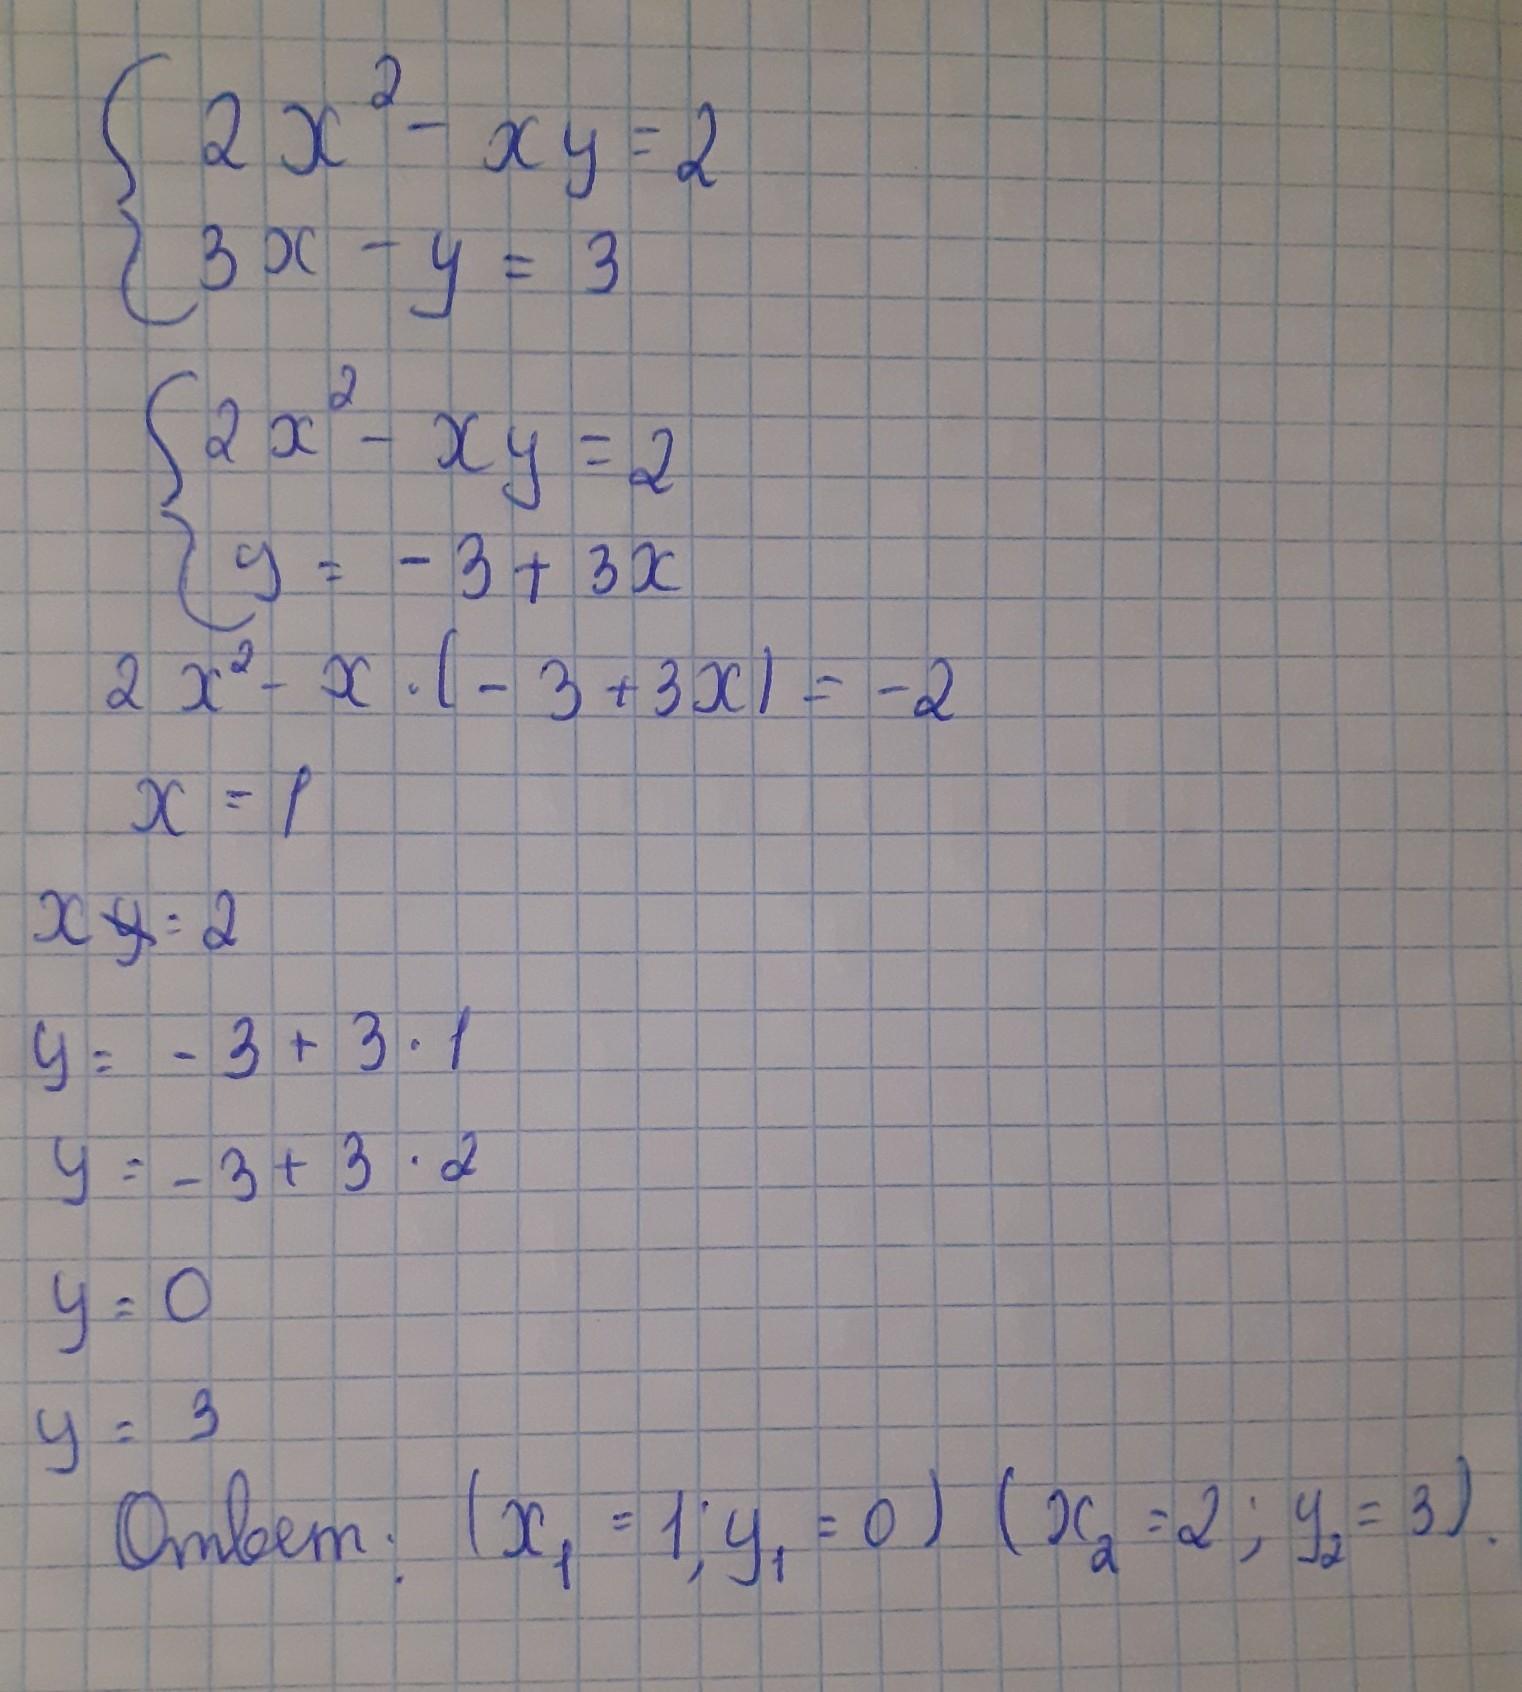 2x² - xy = 2
3x - y = 3
2x² - xy = 2
y = -3 + 3x
2x² - x · (-3 + 3x) = -2
x = 1
x = 2
y = -3 + 3 · 1
y = -3 + 3 · 2
y = 0
y = 3
Ответ: (x₁ = 1; y₁ = 0) (x₂ = 2; y₂ = 3).